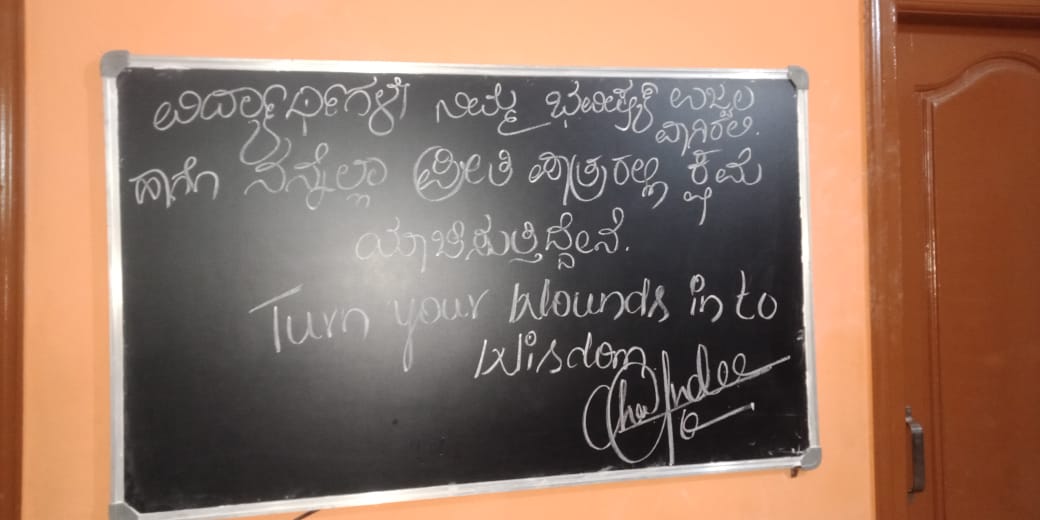 ವಿದ್ಯಾರ್ಥಿಗಳೇ ನಿಮ್ಮ ಭವಿಷ್ಯಕ್ಕೆ ಉಜ್ವಲ
ವಾಗಿರಲಿ.
ಹಾಗೇ ನನ್ನೆಲ್ಲಾ ಪ್ರೀತಿ ಪಾತ್ರರಲ್ಲಿ ಕ್ಷಮೆ
ಯಾಚಿಸುತ್ತಿದ್ದೇನೆ.
Turn your Wounds in to
Wisdom.